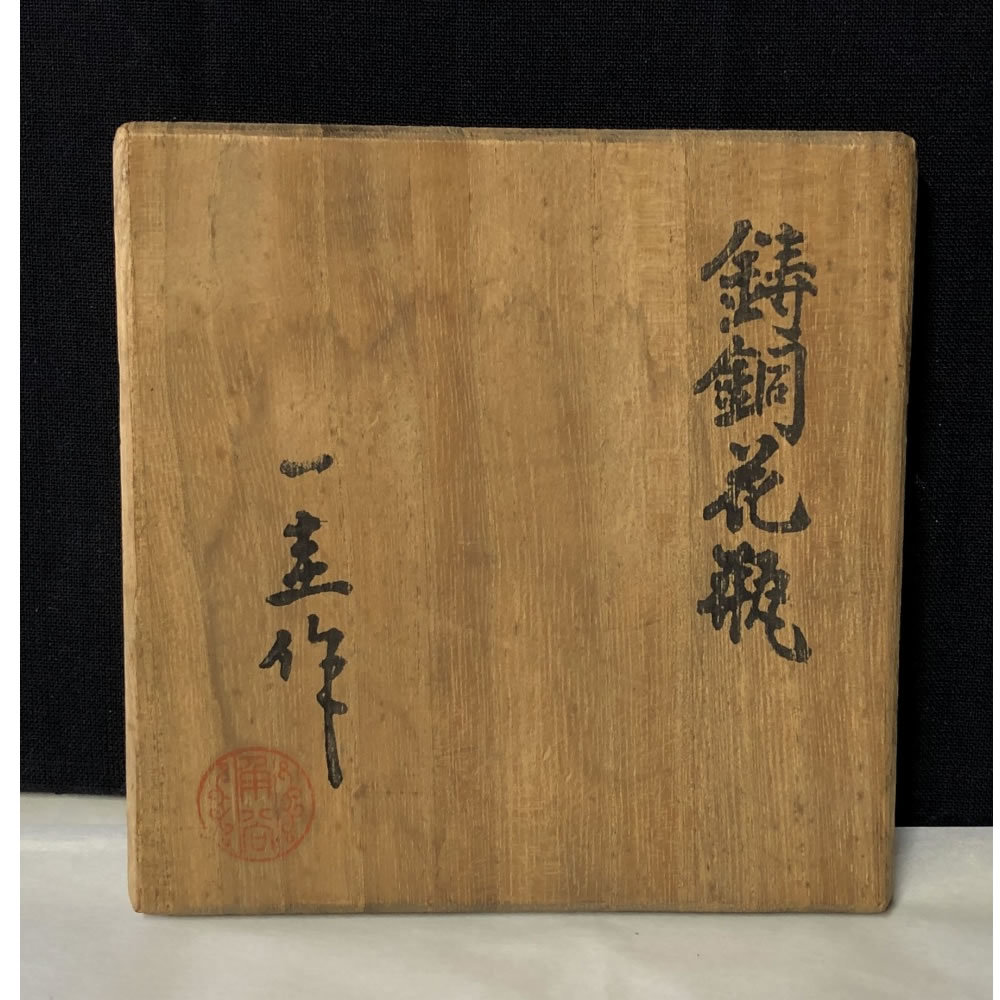 鋳銅花瓶
一圭作